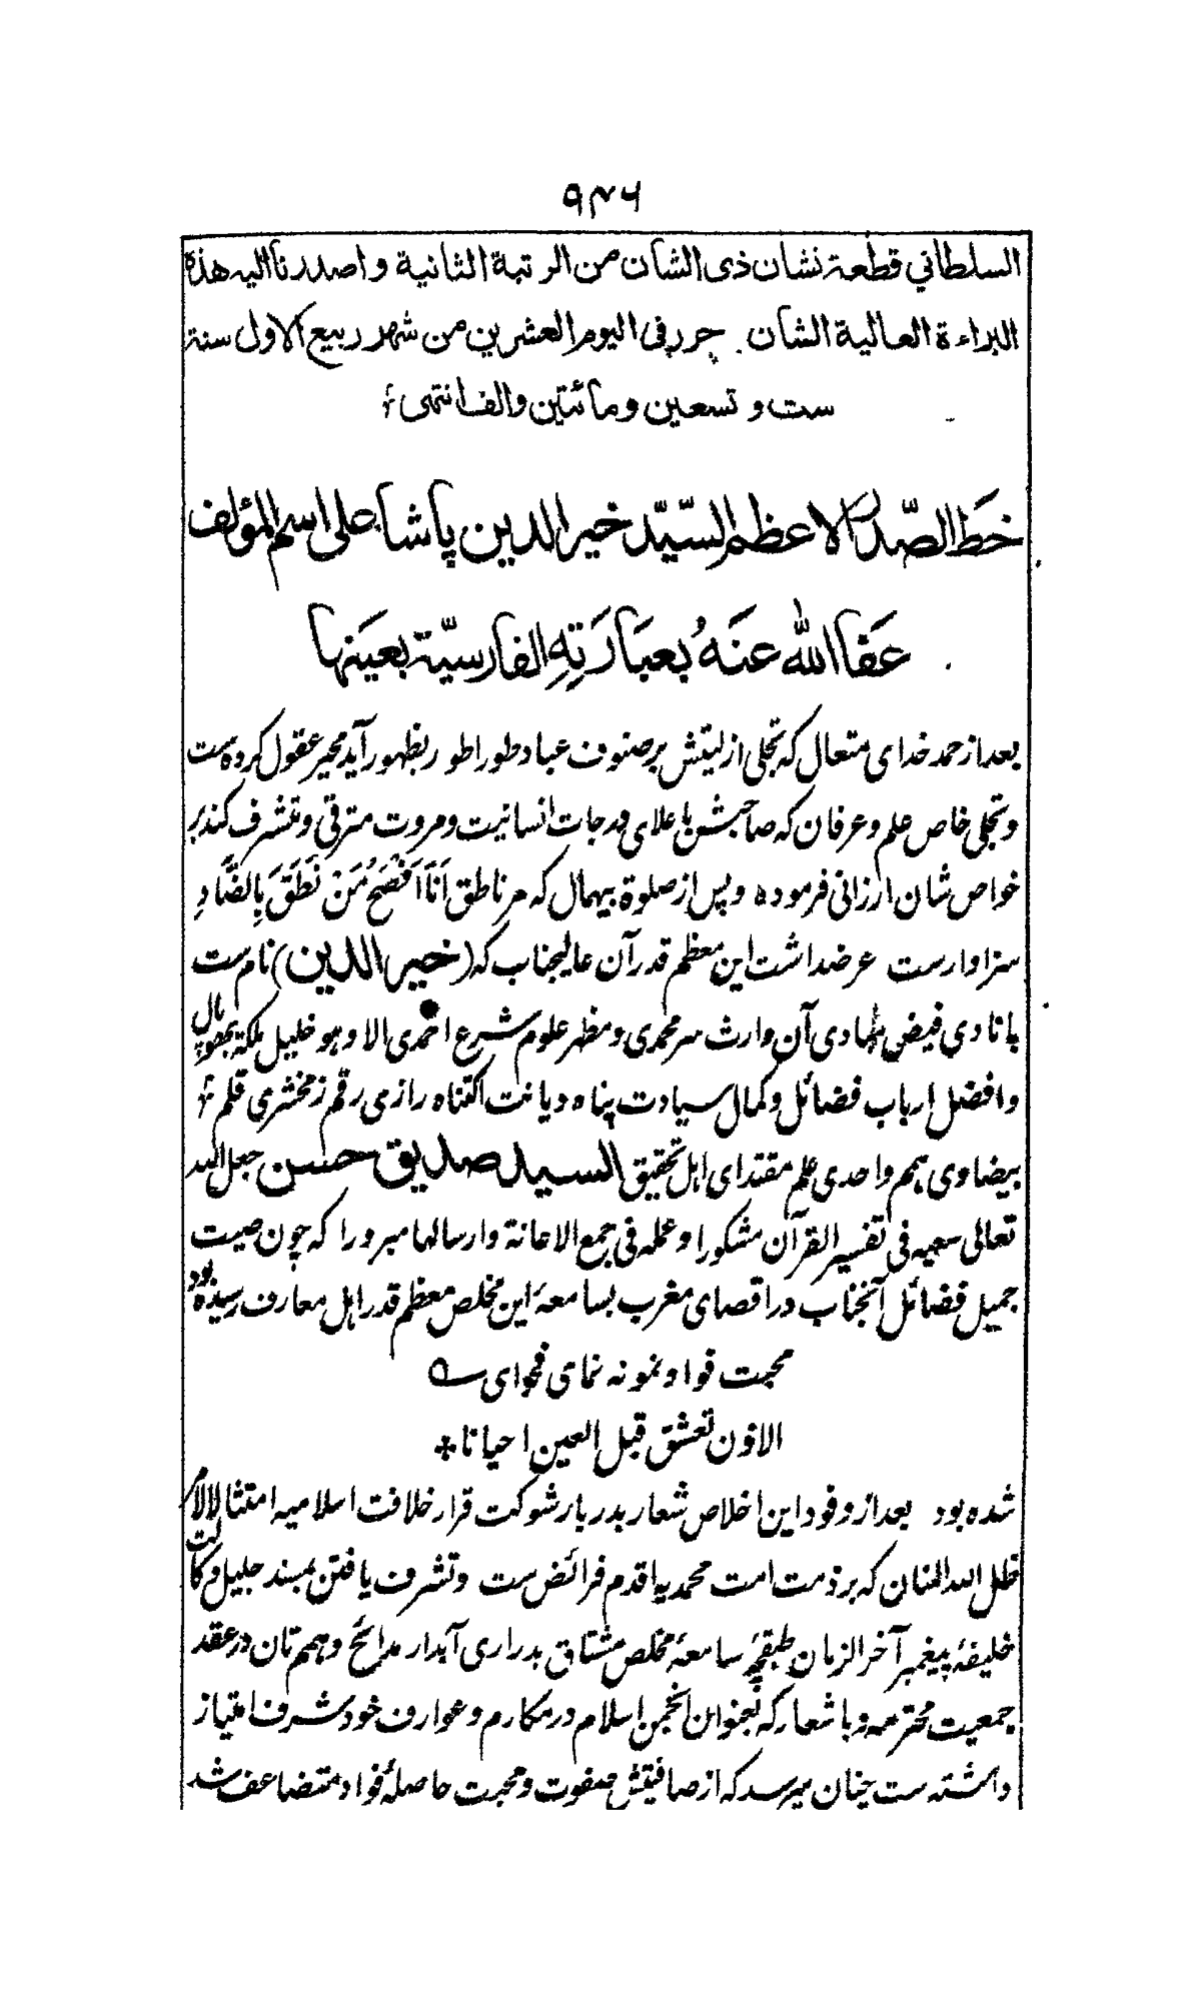 ٩٣٦
السلطاني قطعة نشان ذى الشان من الرتبة الثانية واصدرنا اليه هذه
البراءة العالية الشان حرر فى اليوم العشرين من شهر ربيع الاول سنة
ست و تسعين ومائتين والف انتهى
خط الصدر الاعظم السيّد خير الدين پاشا على اسم المؤلف
عَفَا اللّٰه عَنهُ بعبَارَتِهِ الفارسيّة بعينها
بعد از حمد خدای متعال که تجلی ازلیتش بر صنوف عباد طورا طور بظهور آید محیر عقول کرده ست
وتجلی خاص علم و عرفان که صاحبش باعلای درجات انسانیت و مروت مترقی و متشرف کند بر
خواص شان ارزانی فرموده و پس از صلوة بیهمال که مر ناطق اَنَا اَفْصَحُ مَنْ نَطَقَ بِالضَّادِ
سزاوارست عرضداشت این معظم قدر آن عالیجناب که (خیر الدین) نام ست
بانادی فیض بادی آن وارث سر محمدی و مظهر علوم شرع احمدی الا وهو خلیل ملکة بهوپال
وافضل ارباب فضائل و کمال سیادت پناه دیانت اکتناه رازی رقم زمخشری قلم
بیضاوی همم واحدی علم مقتدای اهل تحقیق السید صدیق حسن جعل الله
تعالی سعیه فی تفسیر القرآن مشکورا وعمله فی جمع الاعانة وارسالها مبرورا که چون صیت
جمیل فضائل آنجناب در اقصای مغرب بسامعهٔ این مخلص معظم قدر اهل معارف رسیده بود
محبت فواد نمونه نمای فحوای
الاذن تعشق قبل العین احیانا
شده بود بعد از وفود این اخلاص شعار بدربار شوکت قرار خلافت اسلامیه امتثالا لامر
ظل الله المنان که بر ذمت امت محمدیه اقدم فرائض ست و تشرف یافتن بمسند جلیل وکالت
خلیفهٔ پیغمبر آخر الزمان سامعهٔ مخلص مشتاق بدراری آبدار مدائح و همم تان در عقد
جمعیت محترمه و باشعار که بعنوان انجمن اسلام در مکارم و عوارف خود شرف امتیاز
داشته ست چنان میرسد که از صافیتش صفوت و محبت حاصلهٔ فواد متضاعف شد